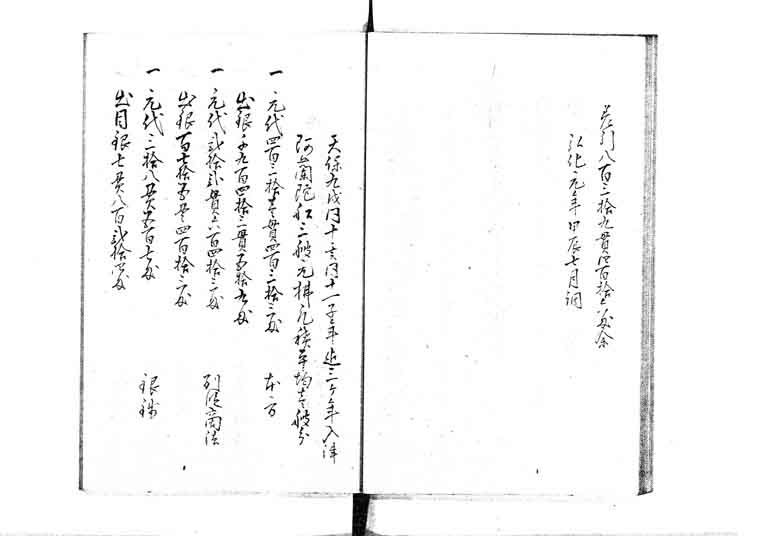 差引八百三拾九貫四百拾六匁余
弘化元年甲辰七月調
天保九戌同十亥同十一子年迄三ケ年入津
阿蘭陀船三艘元拂見積平均壱艘分
一元代四百三拾壱貫四百三拾三匁 本方
出銀千九百四拾三貫五拾九匁
一元代弐拾弐貫六百四拾三匁 別段商法
出銀百七拾五貫四百拾三匁
一元代三拾八貫五百七匁 銀銭
出目銀七貫八百弐拾四匁